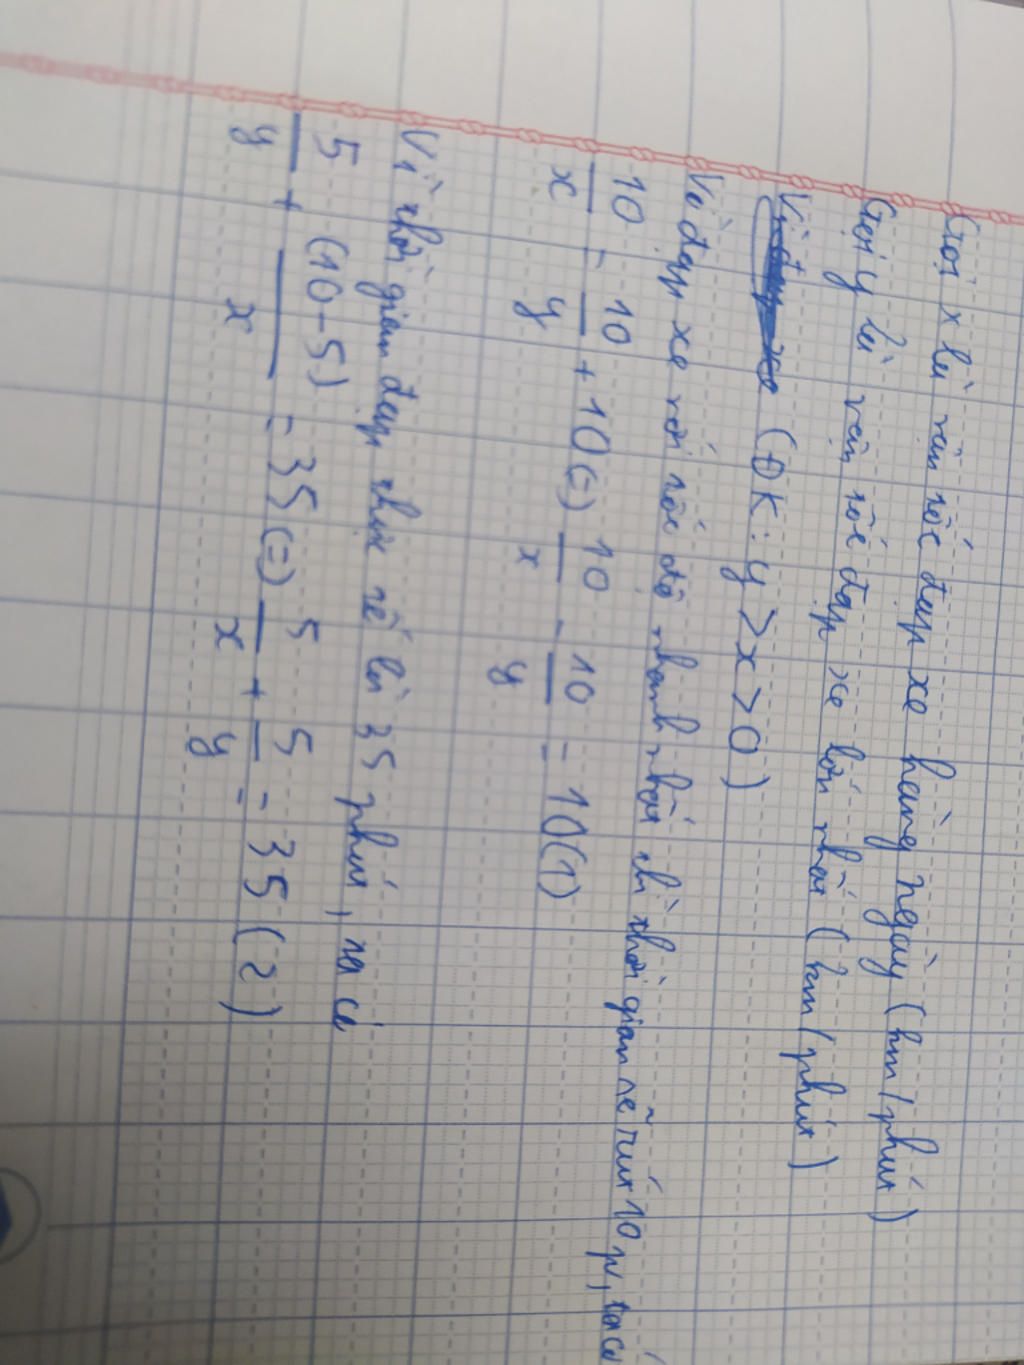 Gọi x là vận tốc đạp xe hằng ngày (km/phút)
Gọi y là vận tốc đạp xe lớn nhất (km/phút)
(ĐK: y > x > 0)
Vì đạp xe với tốc độ nhanh nhất thì thời gian sẽ rút 10p, ta có
10/x = 10/y + 10 (=) 10/x - 10/y = 10 (1)
Vì thời gian đạp thực tế là 35 phút, ta có
5/y + (10-5)/x = 35 (=) 5/x + 5/y = 35 (2)